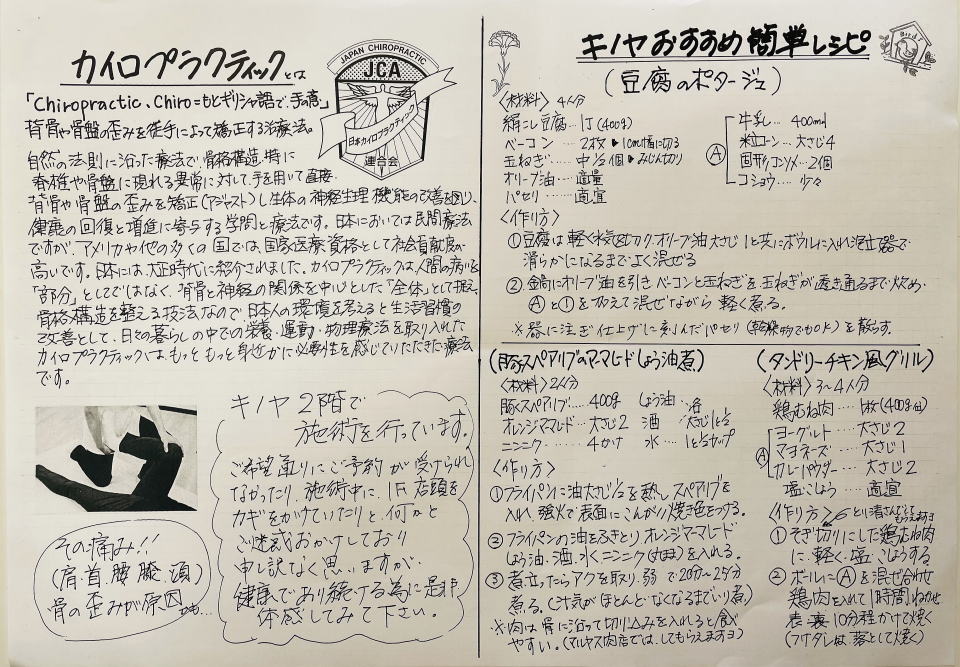 カイロプラクティックとは
JAPAN CHIROPRACTIC
JCA
日本カイロプラクティック
連合会
「Chiropractic、Chiro=もとギリシャ語で、手の意」
背骨や骨盤の歪みを徒手によって矯正する治療法。
自然の法則に沿った療法で骨格構造、特に
脊椎や骨盤に現れる異常に対して、手を用いて直接
背骨や骨盤の歪みを矯正(アジャスト)し生体の神経生理機能の改善を図り、
健康の回復と増進に寄与する学問と療法です。日本においては民間療法
ですが、アメリカや他の多くの国では、国家医療資格として社会貢献度が
高いです。日本には、大正時代に紹介されました。カイロプラクティックは、人間の病いを
「部分」としてではなく、背骨と神経の関係を中心とした「全体」として捉え、
骨格構造を整える技法なので日本人の環境を考えると生活習慣の
改善として、日々の暮らしの中での栄養・運動・物理療法を取り入れた
カイロプラクティックは、もっともっと身近かに必要性を感じていただきた療法
です。
その痛み!!
(肩、首、腰、膝、頭)
骨の歪みが原因かも...
キノヤ2階で
施術を行っています。
ご希望通りにご予約が受けられ
なかったり、施術中に、1F店頭を
カギをかけていたりと、何かと
ご迷惑おかけしており
申し訳なく思いますが、
健康であり続ける為に是非
体感してみて下さい。
キノヤおすすめ簡単レシピ
Bird
(豆腐のポタージュ)
〈材料〉4人分
絹ごし豆腐...1丁(400g)
ベーコン...2枚▶1cm幅に切る
玉ねぎ...中1/2個▶みじん切り
オリーブ油...適量
パセリ...適宜
Ⓐ
牛乳...400ml
粒コーン...大さじ4
固形コンソメ...2個
コショウ...少々
〈作り方〉
①豆腐は軽く水気を切り、オリーブ油大さじ1と共にボウルに入れ泡立器で
滑らかになるまでよく混ぜる
②鍋にオリーブ油を引きベーコンと玉ねぎを玉ねぎが透き通るまで炒め、
Ⓐと①を加えて混ぜながら軽く煮る。
※器に注ぎ仕上げに刻んだパセリ(乾燥物でもOK)を散らす。
(豚スペアリブのマーマレードしょう油煮)
〈材料〉2人分
豚スペアリブ...400g しょう油...
オレンジマーマレード...大さじ2 酒 大さじ1と1/2
ニンニク...4かけ 水...1と1/2カップ
〈作り方〉
①フライパンに油大さじ1/2を熱しスペアリブを
入れ、強火で表面にこんがり焼き色をつける。
②フライパンの油をふきとり、オレンジマーマレード
しょう油、酒、水、ニンニクを入れる。
③煮立ったらアクを取り、弱で20分〜25分
煮る。(汁気がほとんどなくなるまでいり煮)
※肉は骨に沿って切り込みを入れると食べ
やすい。(マルヤス肉店では、してもらえますヨ)
(タンドリーチキン風グリル)
〈材料〉3〜4人分
鶏むね肉...1枚(400g位)
Ⓐ
ヨーグルト...大さじ2
マヨネーズ...大さじ1
カレーパウダー...大さじ2
塩こしょう...適宜
〈作り方〉
①そぎ切りにした鶏むね肉
に、軽く塩、こしょうする
②ボールにⒶを混ぜ合わせ
鶏肉を入れて1時間ねかせ
表・裏10分程かけて焼く
(つけダレは落として焼く)